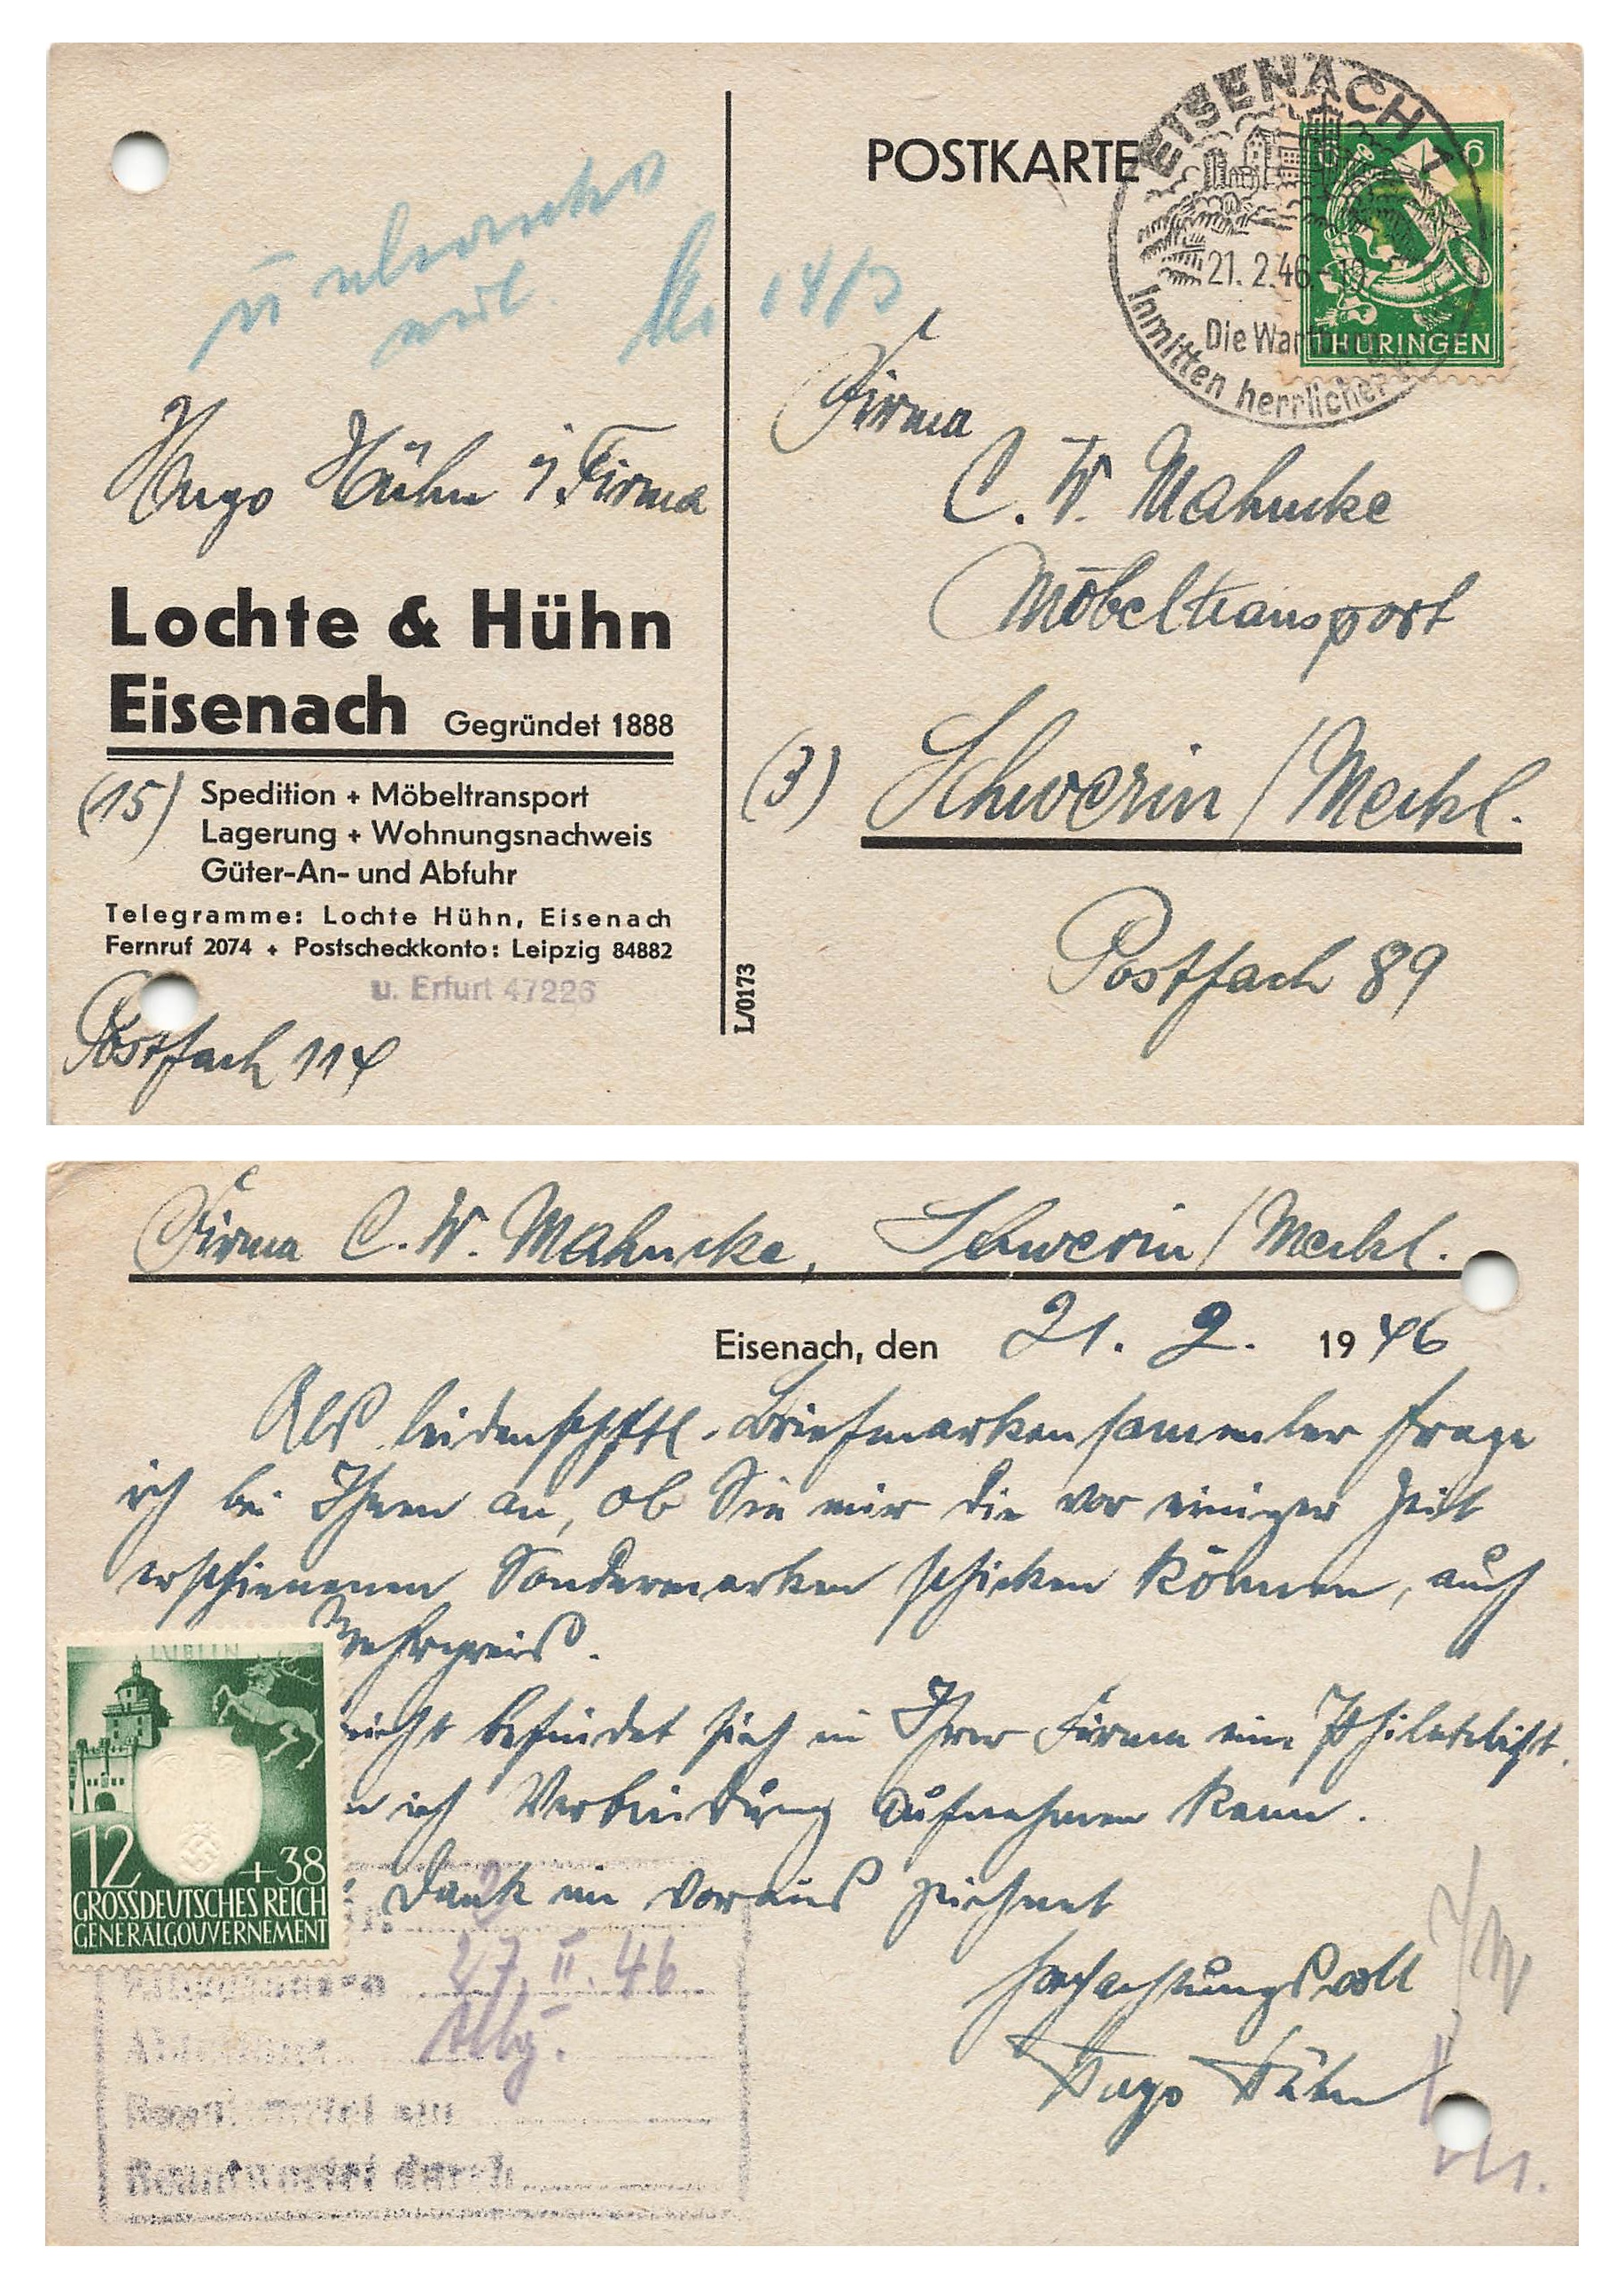 POSTKARTE
EISENACH 1
21.2.46
Die Wartburg
Inmitten herrlicher
6
THÜRINGEN
14/3
Hugo Hühn i/Firma
Lochte & Hühn
Eisenach Gegründet 1888
(15) Spedition + Möbeltransport
Lagerung + Wohnungsnachweis
Güter-An- und Abfuhr
Telegramme: Lochte Hühn, Eisenach
Fernruf 2074 + Postscheckkonto: Leipzig 84882
u. Erfurt 47226
Postfach 114
L/0173
Firma
C. W. Mahncke
Möbeltransport
(3) Schwerin/Meckl.
Postfach 89
Firma C. W. Mahncke, Schwerin/Meckl.
Eisenach, den 21. 2. 1946
Als leidenschftl. Briefmarkensammler frage
ich bei Ihnen an, ob Sie mir die vor einiger Zeit
erschienenen Sondermarken schicken können, auch
Mehrpreis.
nicht befindet sich in Ihrer Firma ein Philatelist,
n ich Verbindung aufnehmen kann.
Dank im voraus zeichnet
Hochachtungsvoll
Hugo Hühn
LUBLIN
12+38
GROSSDEUTSCHES REICH
GENERALGOUVERNEMENT
27. II. 46
Beantwortet am
Beantwortet durch